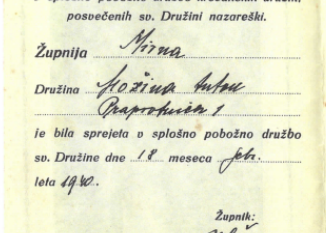 v splošno pobožno družbo krščanskih družin,
posvečenih sv. Družini nazareški.
Župnija Mirna
Družina Možina Anton
Praprotnica 1
je bila sprejeta v splošno pobožno družbo
sv. Družine dne 18 meseca febr.
leta 1940.
Župnik: